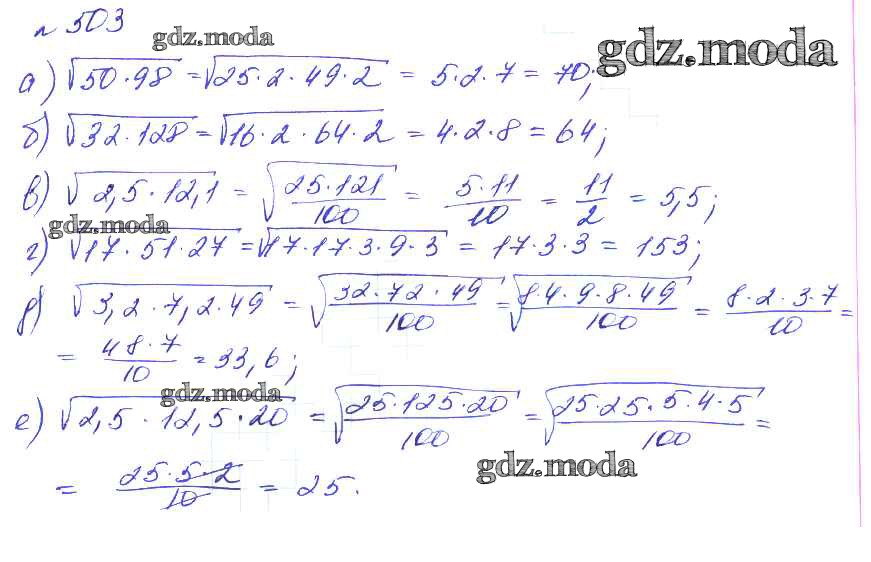 № 503
gdz.moda
gdz.moda
а) √50·98 = √25·2·49·2 = 5·2·7 = 70;
б) √32·128 = √16·2·64·2 = 4·2·8 = 64;
в) √2,5·12,1 = √25·121/100 = 5·11/10 = 11/2 = 5,5;
gdz.moda
г) √17·51·27 = √17·17·3·9·3 = 17·3·3 = 153;
д) √3,2·7,2·49 = √32·72·49/100 = √8·4·9·8·49/100 = 8·2·3·7/10 =
= 48·7/10 = 33,6;
gdz.moda
е) √2,5·12,5·20 = √25·125·20/100 = √25·25·5·4·5/100 =
gdz.moda
= 25·5·2/10 = 25.